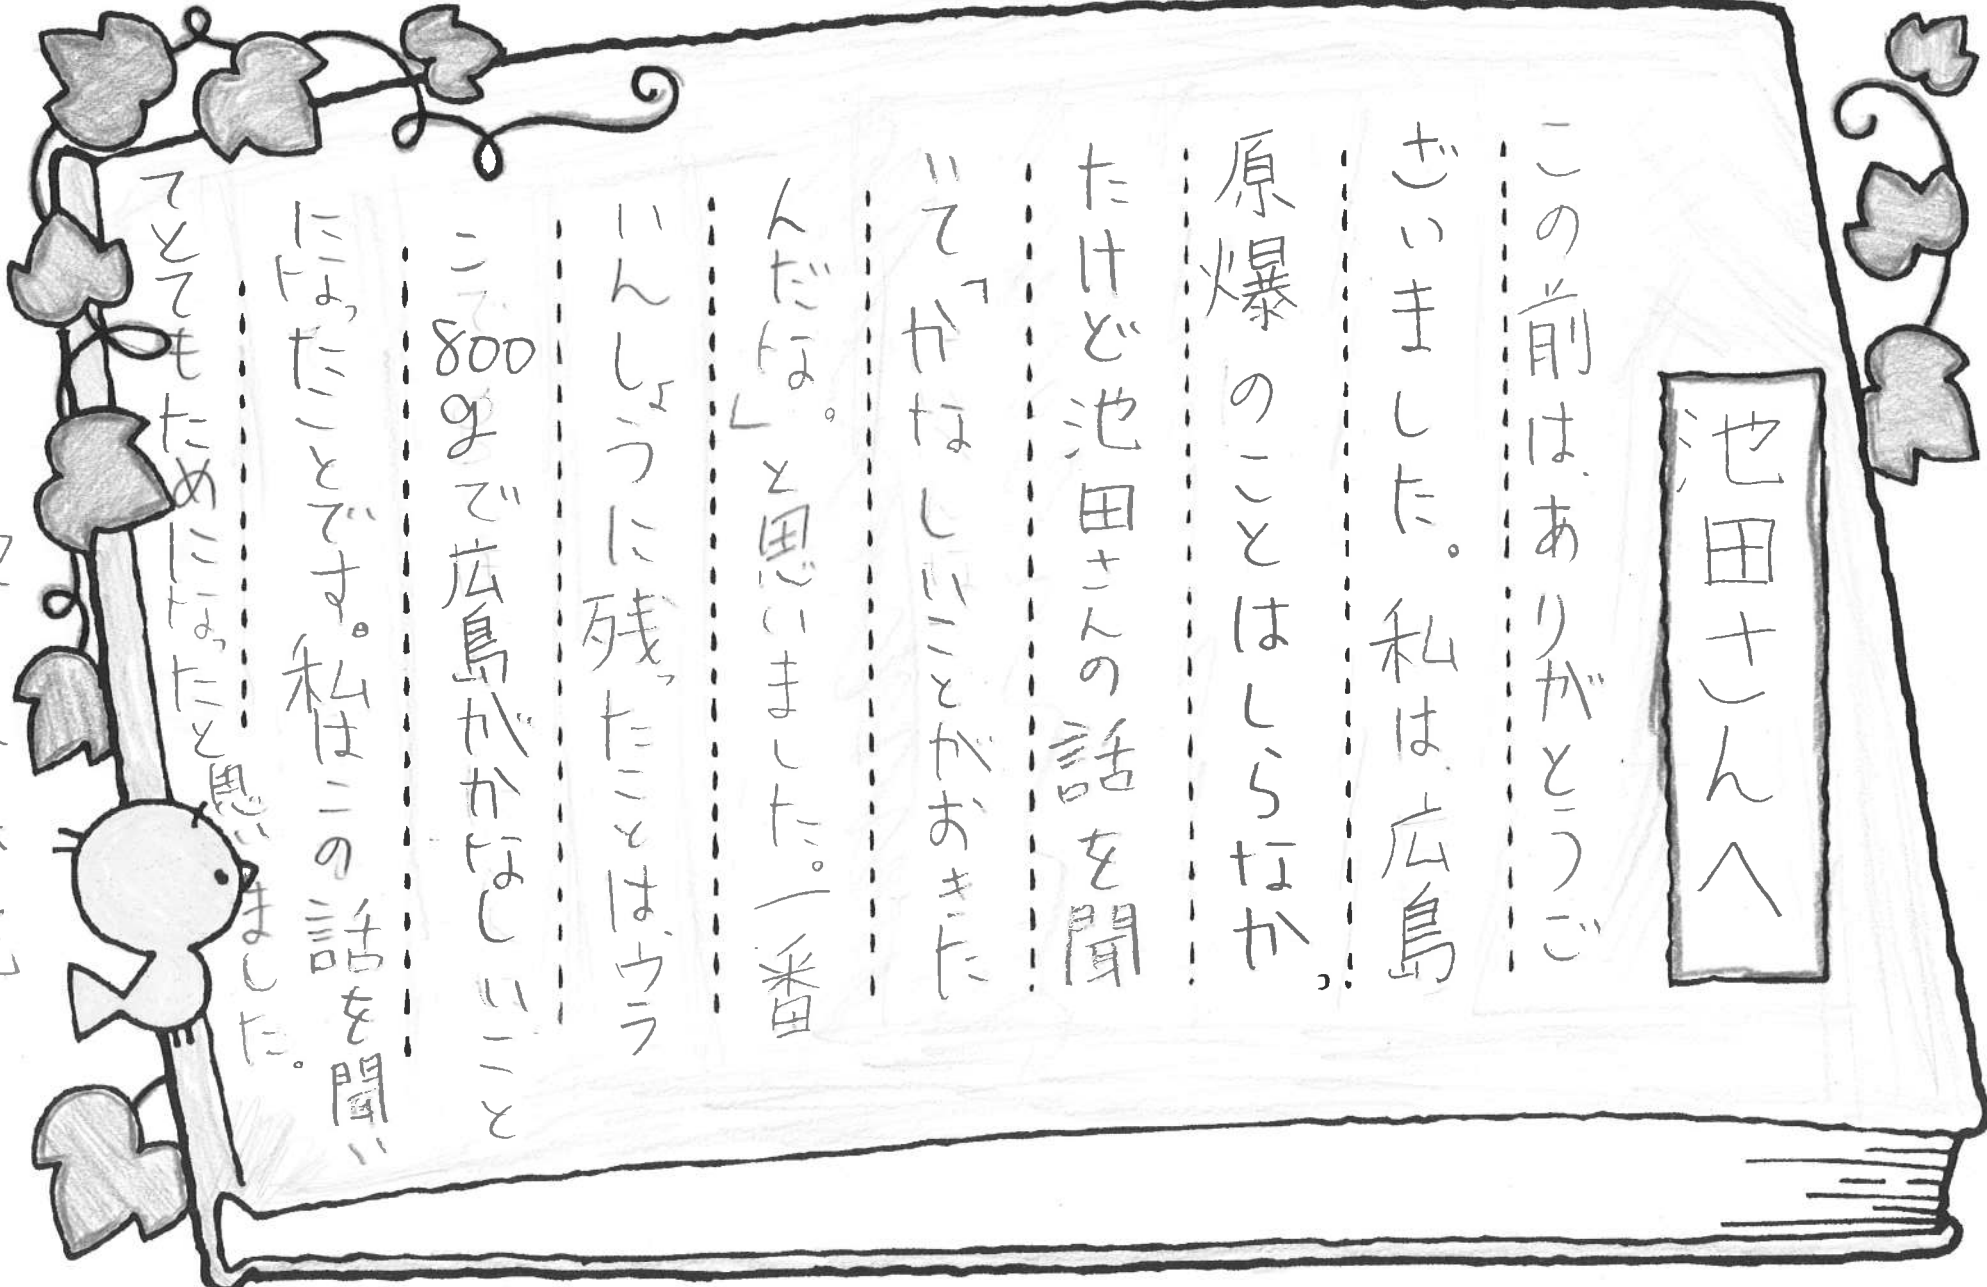 池田さんへ
この前は、ありがとうご
ざいました。私は、広島
原爆のことはしらなかっ
たけど池田さんの話を聞
いて「かなしいことがおきた
んだな。」と思いました。一番
いんしょうに残ったことは、ウラ
こで800gで広島がかなしいこと
になったことです。私はこの話を聞い
てとてもためになったと思いました。